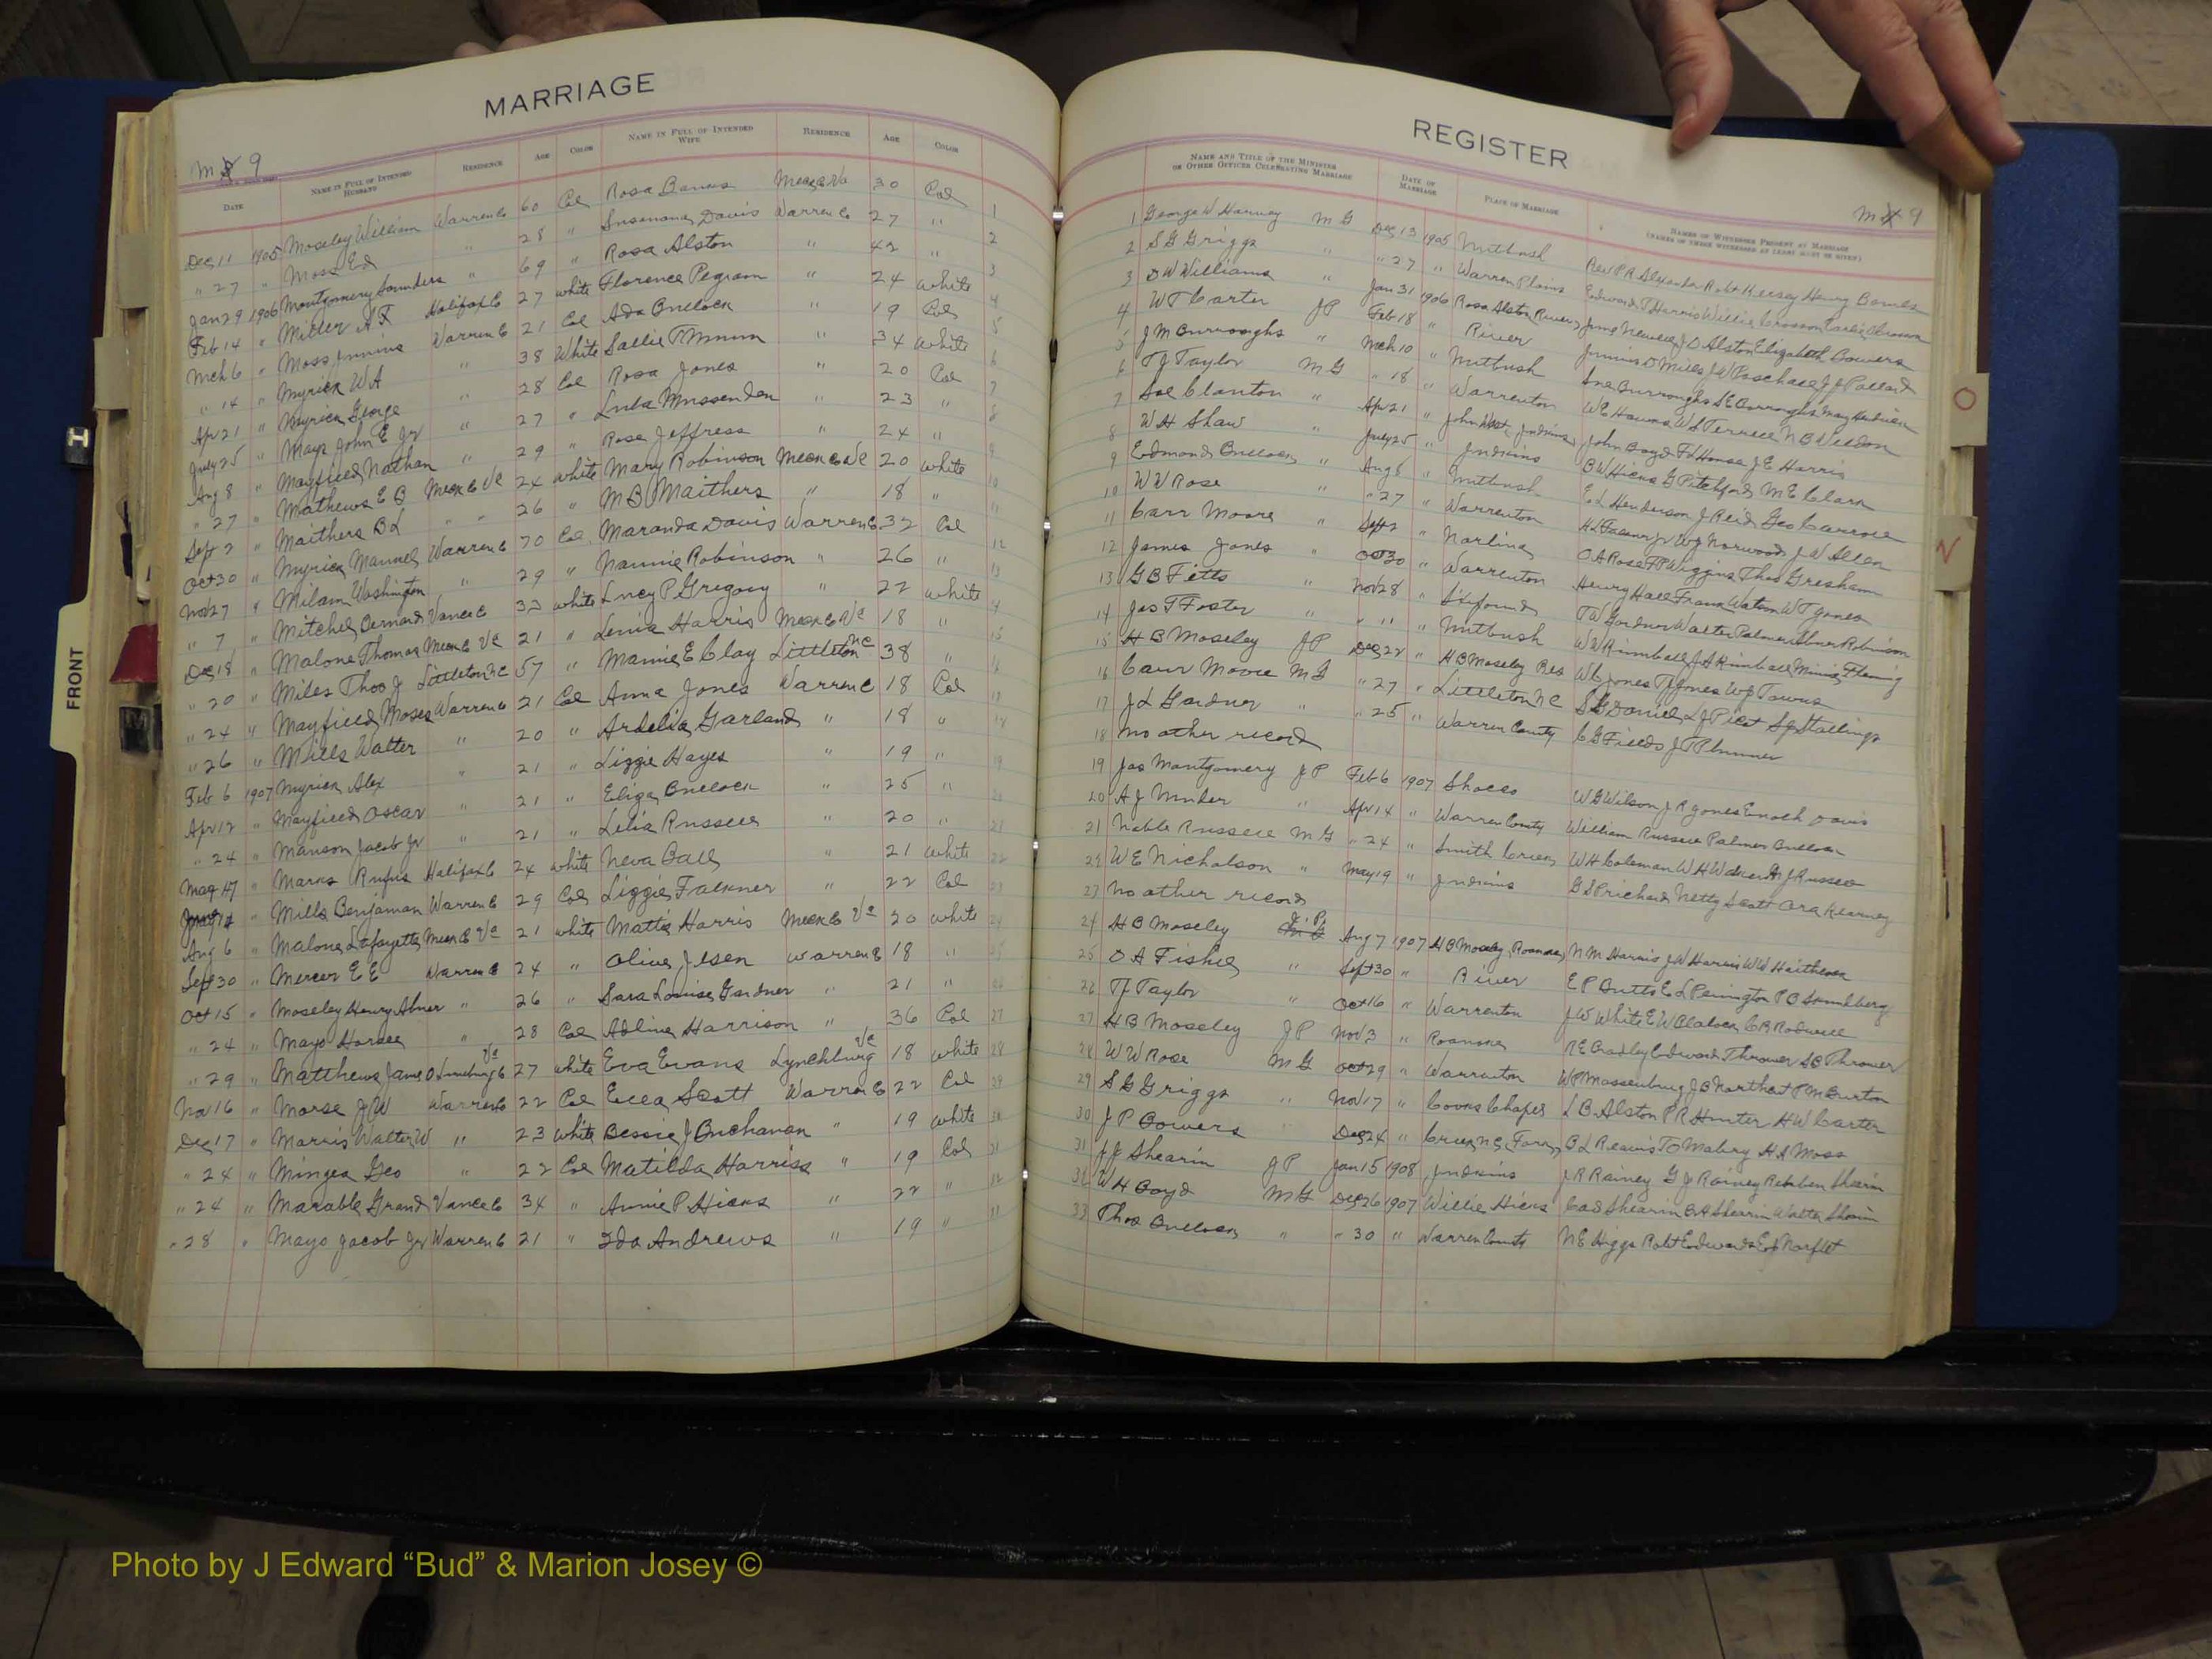 MARRIAGE
M 9
DATE NAME IN FULL OF INTENDED HUSBAND RESIDENCE AGE COLOR NAME IN FULL OF INTENDED WIFE RESIDENCE AGE COLOR
Dec 11 1905 Moseley William Warren Co 60 Col Rosa Meck Co Va 30 Col 1
" 27 " Moss Ed " 28 " Davis Warren Co 27 " 2
Jan 29 1906 Montgomery Saunders " 69 " Rosa Alston " 42 " 3
Feb 14 " Miller A T Halifax Co 27 white Florence Pegram " 24 white 4
Mch 6 " Moss Junius Warren Co 21 Col Ada Bullock " 19 Col 5
" 14 " Myrick W A " 38 White Sallie T " 34 white 6
Apr 21 " Myrick George " 28 Col Rosa Jones " 20 Col 7
July 25 " Mayo John E Jr " 27 " Lula " 23 " 8
Aug 8 " Mayfield Nathan " 29 " Rosa Jeffress " 24 " 9
" 27 " Mathews E B Meck Co Va 24 white Mary Robinson Meck Co Va 20 white 10
Sept 2 " Maithers B L " " 26 " M B Maithers " 18 " 11
Oct 30 " Myrick Warren Co 70 Col Maranda Davis Warren Co 32 Col 12
Nov 27 " Milam Washington " 29 " Nannie Robinson " 26 " 13
" 7 " Mitchel Bernard Vance Co 32 white Lucy P Gregory " 22 white 14
Dec 18 " Malone Thomas Meck Co Va 21 " Lenia Harris Meck Co Va 18 " 15
" 20 " Miles Thos J Littleton NC 57 " Mamie E Clay Littleton NC 38 " 16
" 24 " Mayfield Moses Warren Co 21 Col Anna Jones Warren Co 18 Col 17
" 26 " Mills Walter " 20 " Ardelia Garland " 18 " 18
Feb 6 1907 Myrick Alex " 21 " Lizzie Hayes " 19 " 19
Apr 12 " Mayfield Oscar " 21 " Eliza Bullock " 25 " 20
" 24 " Manson Jacob Jr " 21 " Lelia Russell " 20 " 21
May 17 " Marks Rufus Halifax Co 24 white Neva Ball " 21 white 22
" Mills Benjaman Warren Co 29 Col Lizzie Falkner " 22 Col 23
Aug 6 " Malone Lafayette Meck Co Va 21 white Mattie Harris Meck Co Va 20 white 24
Sept 30 " Mercer E E Warren Co 24 " Olive J Warren Co 18 " 25
Oct 15 " Moseley Henry Abner " 26 " Sara Louise Gardner " 21 " 26
" 24 " Mayo Horace " 28 Col Adline Harrison " 36 Col 27
" 29 " Matthews James O Va 27 white Eva Evans Lynchburg Va 18 white 28
Nov 16 " Morse J W Warren Co 22 Col Scott Warren Co 22 Col 29
Dec 17 " Morris Walter W " 23 white Bessie J Buchanan " 19 white 30
" 24 " Minges Geo " 22 Col Matilda Harriss " 19 Col 31
" 24 " Marable Grand Vance Co 34 " Annie P Hicks " 22 "
" 28 " Mayo Jacob Jr Warren Co 21 " Ida Andrews " 19 "
REGISTER
M 9
NAME AND TITLE OF THE MINISTER OR OTHER OFFICER CELEBRATING MARRIAGE DATE OF MARRIAGE PLACE OF MARRIAGE NAMES OF WITNESSES PRESENT AT MARRIAGE
1 George W Harvey M G Dec 13 1905 Nutbush Rev P R Alexander Robt Kersey Henry
2 S G Griggs " " 27 " Warren Plains Edward T Harris Willie
3 D W Williams " Jan 31 1906 Rosa Alston J D Alston Elizabeth Bowers
4 W T Carter J P Feb 18 " River Junius D Miles J W Paschall J J Pollard
5 J M Burroughs " Mch 10 " Nutbush Burroughs
6 T J Taylor M G " 18 " Warrenton W L Terrell N B Weldon
7 Sol Clanton " Apr 21 " John John Boyd House J E Harris
8 W H Shaw " July 25 " Judkins B W Hicks G Pitchford M E Clark
9 Edmond Bullock " Aug 8 " Nutbush E L Henderson J Reid Geo Carroll
10 W W Rose " " 27 " Warrenton W J Norwood J W Allen
11 Carr Moore " Sept 2 " Norlina O A Rose Wiggins Thos Gresham
12 James Jones " Oct 30 " Warrenton Henry Hall Frank Watson W T Jones
13 G B Fitts " Nov 28 " Sixpound T W Gardner Walter Palmer Abner Robinson
14 Jas T Foster " " 11 " Nutbush W W Kimball J A Kimball Minnie Fleming
15 H B Moseley J P Dec 22 " H B Moseley Res W C Jones T J Jones W J Towns
16 Carr Moore M G " 27 " Littleton NC S G Daniel L J Picot Stallings
17 J L Gardner " " 25 " Warren County C G Fields J T Plummer
18 No other record
19 Jas Montgomery J P Feb 6 1907 Shocco W G Wilson J R Jones Enoch Davis
20 A J " Apr 14 " Warren County William Russell Palmer Bullock
21 Noble Russell M G " 24 " Smith Creek W H Coleman W H Walker A J Russell
22 W E Nicholson " May 19 " Judkins G S Prichard Netty Scott Ora Kearney
23 No other record
24 H B Moseley J. P. Aug 7 1907 H B Moseley, Roanoke N M Harris J W Harris W W Haithcock
25 O A Fishel " Sept 30 " River E P Butts E L Penington
26 T J Taylor " Oct 16 " Warrenton J W White E W Blalock C R Rodwell
27 H B Moseley J P Nov 3 " Roanoke R E Bradley Edward Thrower
28 W W Rose M G Oct 29 " Warrenton W P Massenburg
29 S G Griggs " Nov 17 " Cooks Chapel L B Alston P R Hunter H W Carter
30 J P Bowers " Dec 24 " B L Reavis T O Mabry H A Moss
31 J J Shearin J P Jan 15 1908 Judkins J R Rainey G J Rainey Reuben Shearin
W H Boyd M G Dec 26 1907 Willie Hicks Shearin B A Shearin Walter Shearin
33 Thos Bullock " " 30 " Warren County N E Higgs Robt Edwards
FRONT
O
N
Photo by J Edward “Bud” & Marion Josey ©